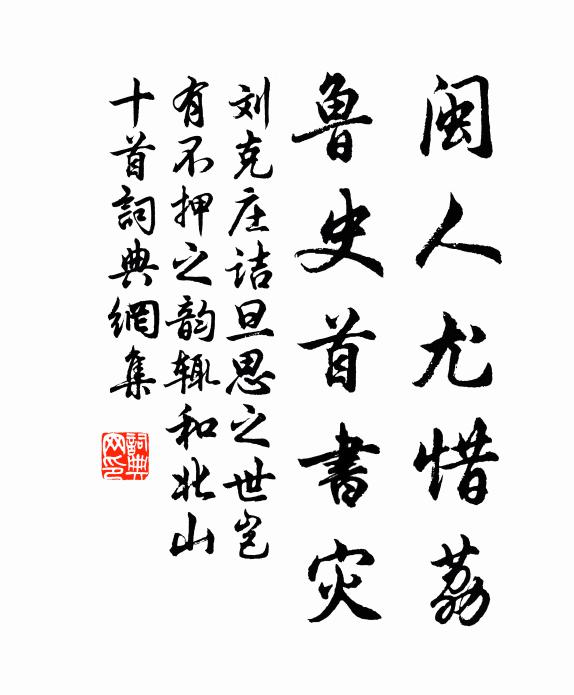 闽人尤惜荔
鲁史首書灾
刘克庄诘旦思之世岂
有不押之韵辄和北山
十首詞典網集
詞典網印